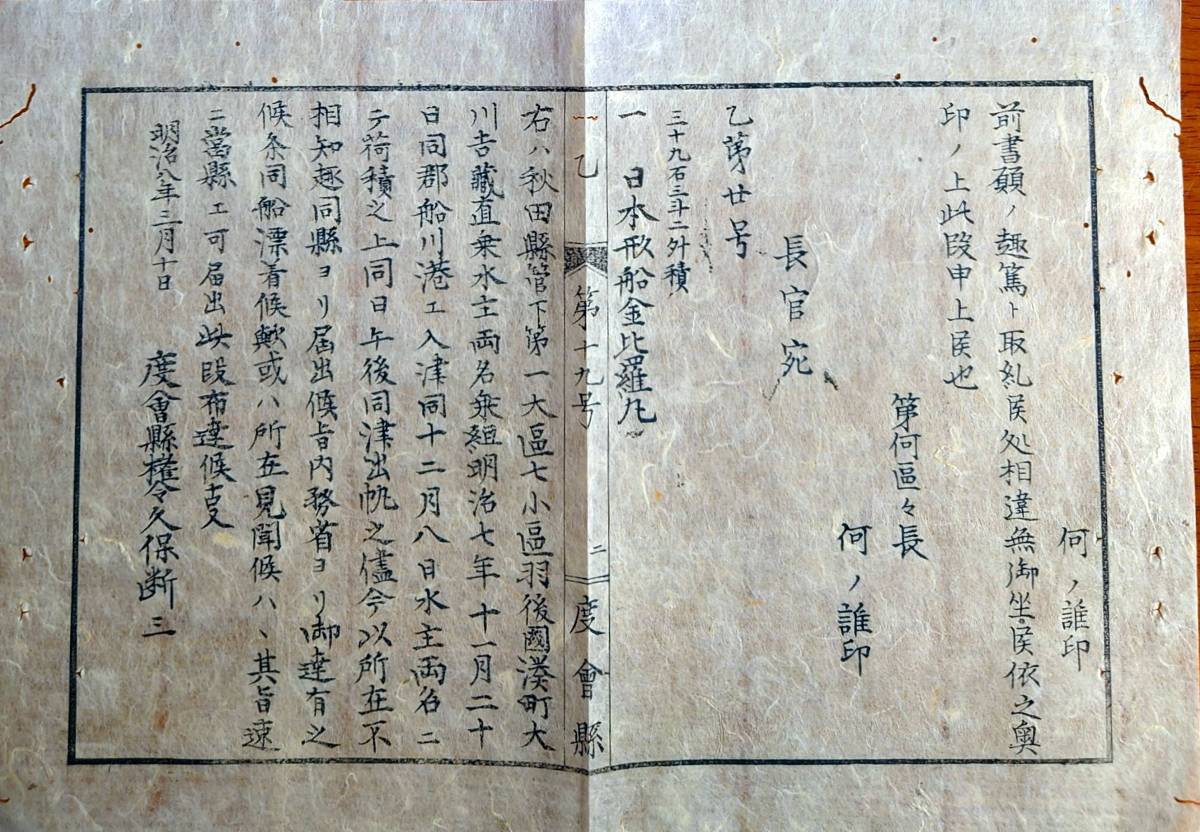 何ノ誰印
前書願ノ趣篤ト取糺候処相違無御坐候依之奥
印ノ上此段申上候也
第何區々長
何ノ誰印
長官宛
乙第廿号
三十九石三斗二外積
一 日本形船金比羅丸
一乙 第十九号 二 度會縣
右ハ秋田縣管下第一大區七小區羽後國湊町大
川吉藏直乗水主両名乗組明治七年十一月二十
日同郡船川港エ入津同十二月八日水主両名ニ
テ荷積之上同日午後同津出帆之儘今以所在不
相知趣同縣ヨリ届出候旨内務省ヨリ御達有之
候条同船漂着候歟或ハ所在見聞候ハヽ其旨速
ニ當縣エ可届出此段布達候支
明治八年三月十日
度會縣權令久保断三